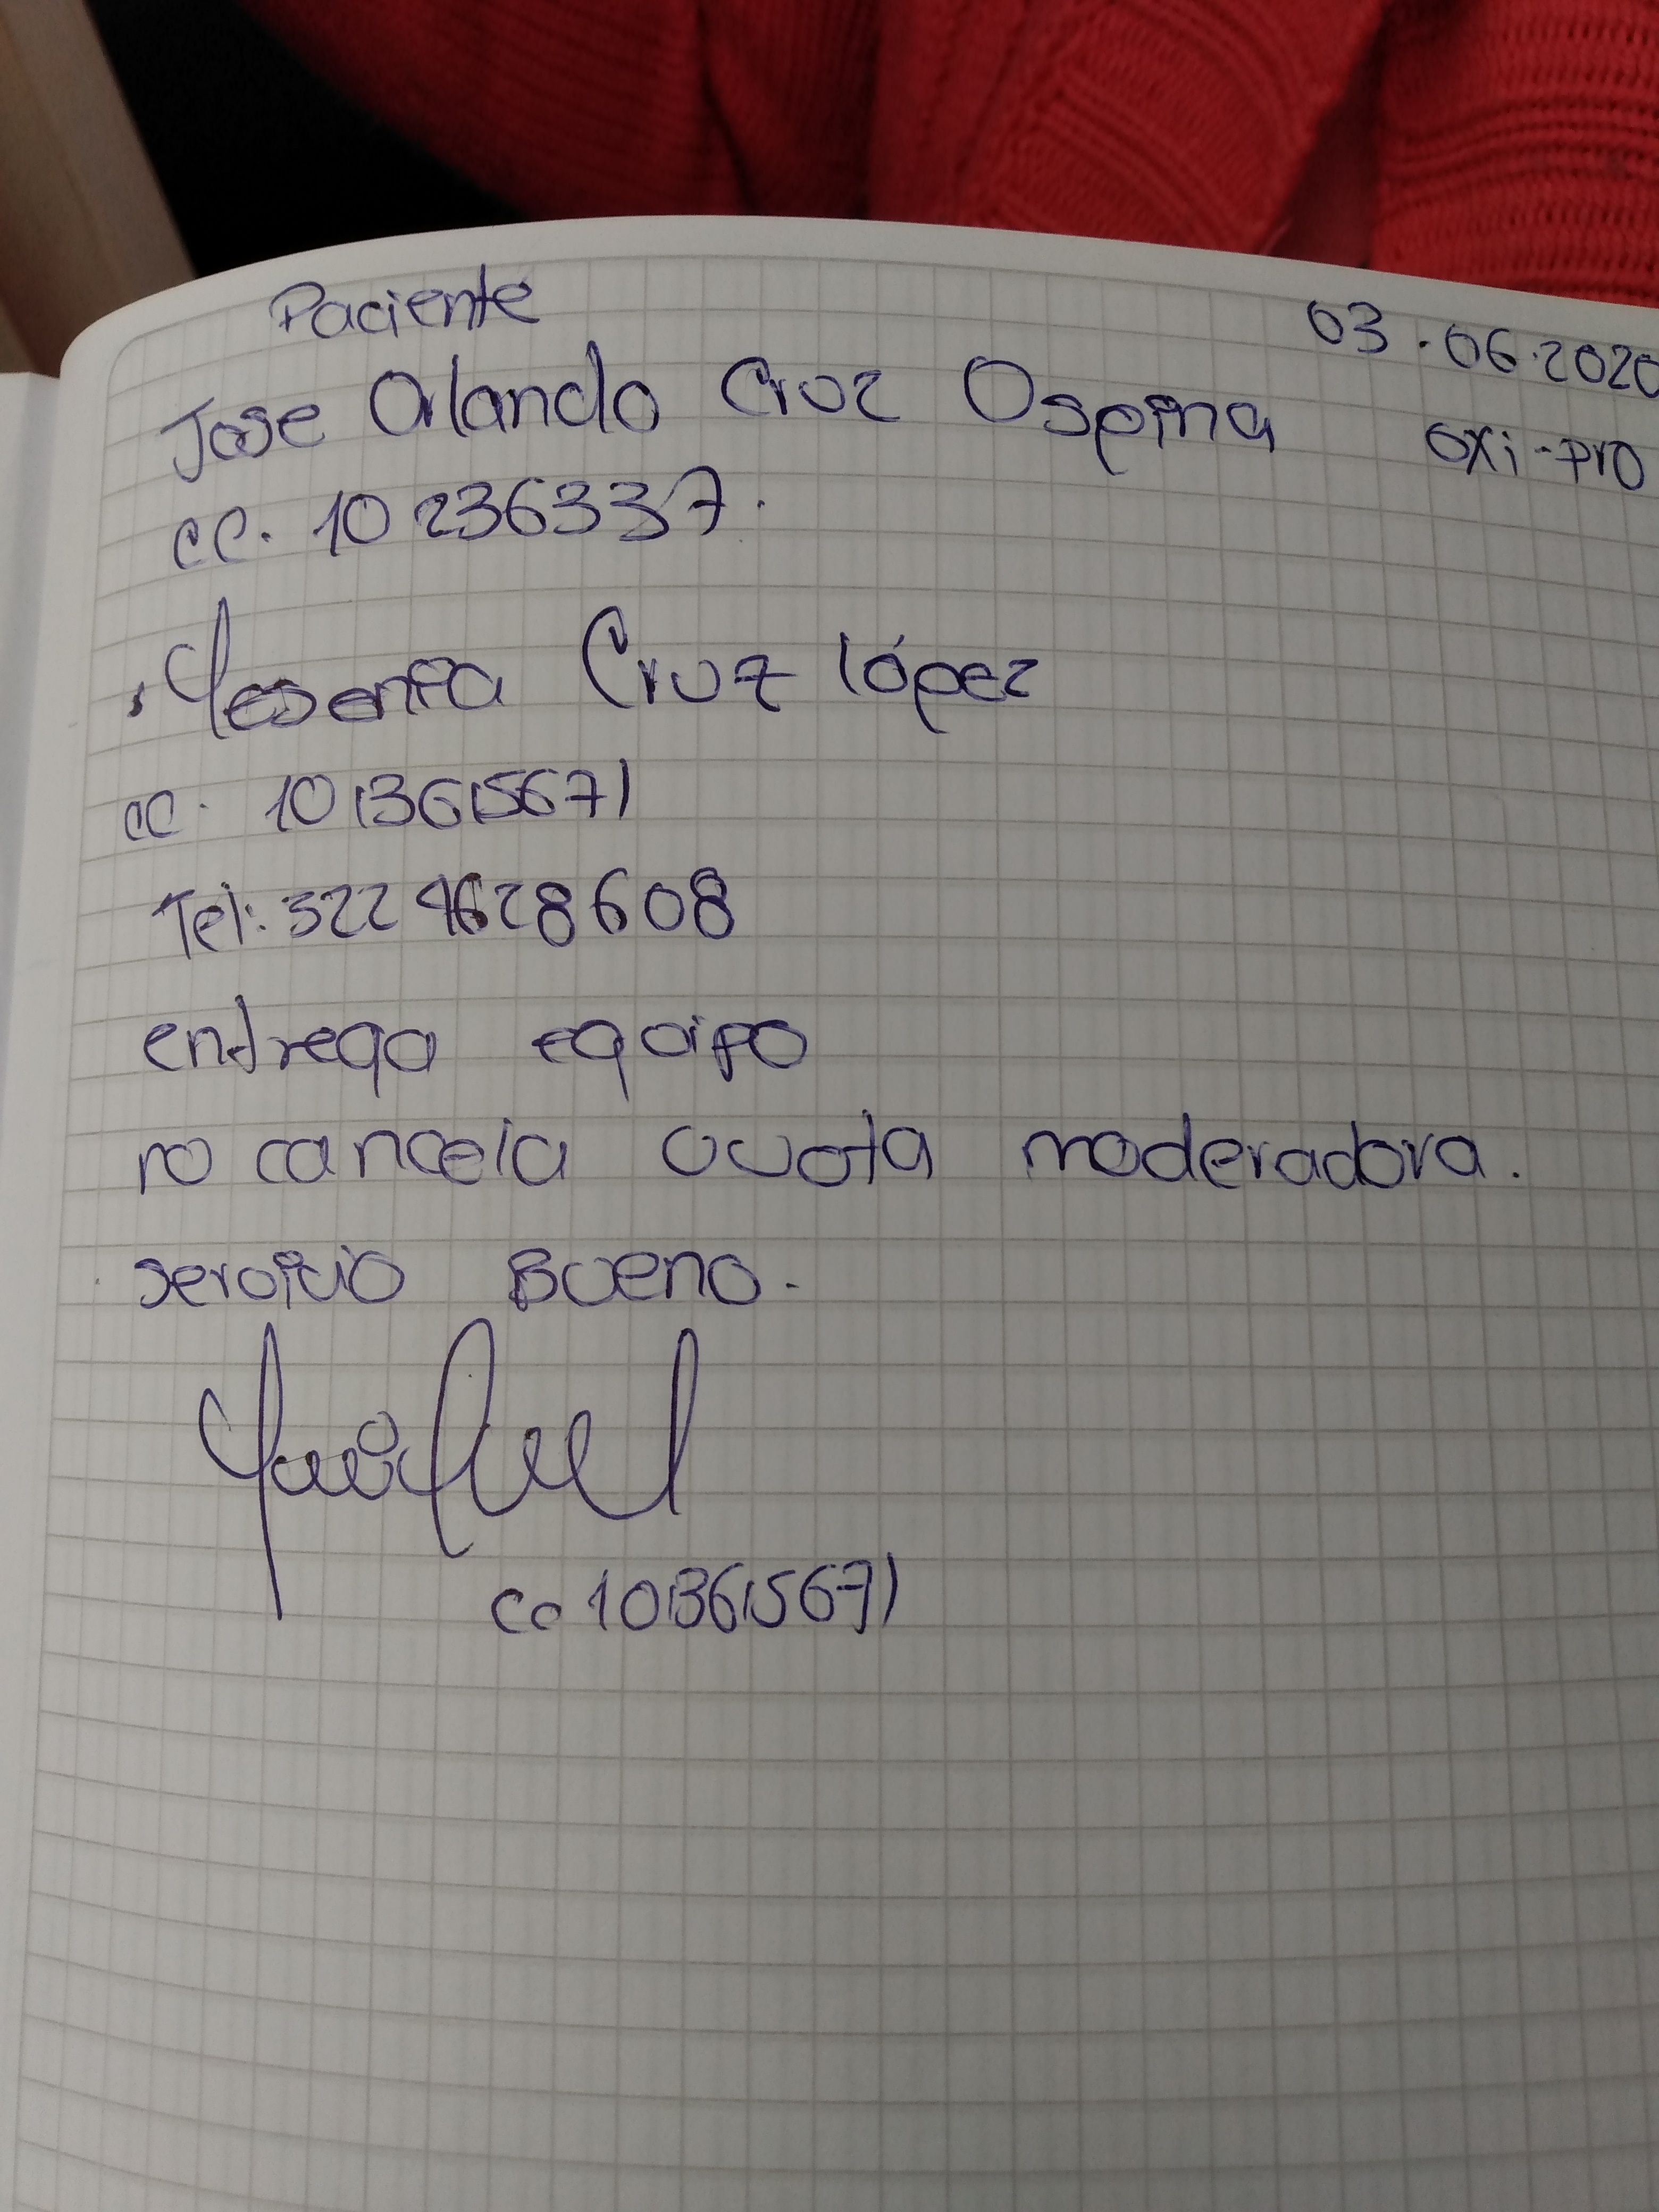 Paciente
03.06.2020
Jose Orlando Cruz Ospina
oxi-pro
CC. 10 236337.
Yesenia Cruz López
CC. 1013615671
Tel: 322 4628608
entrega equipo
no cancela cuota moderadora.
servicio Bueno.
CC 1013615671